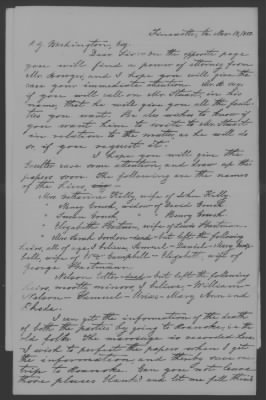 Nov. 18, 1850
P. G. Washington, Esq
Dear Sir: On the opposite page
you will find a power of attorney from
Mr. and I hope you will give the
case your immediate attention.
if you will call on Mr. Stuart, in her
name, that he will give you all the facili-
ties you want. He also wishes to know if
you want him to write to Mr. Stuart
in relation to the matter, as he will do
so if you request it.
I hope you will give the
case some attention, and draw up the
papers soon. The following are the names
of the heirs,
Mrs. Catherine Kelly, wife of John Kelly
" Mary Crouch, widow of David Crouch
" Susan Crouch " " Henry Crouch
" Elizabeth Peatman, wife of Lewis Peatman.
" Mrs. Sarah dead but left the following
heirs, all of age I believe, Samuel - Daniel - Mary
bell, wife of Wm. Campbell - Elizabeth, wife of
George
Nelson dead but left the following
heirs, mostly minors I believe - William -
Nelson - Samuel - - Mary Ann and
Rhoda.
I can get the information of the death
of both the parties by going to Roanoke, as the
old folks. The marriage is recorded here.
I wish to perfect the papers when I get
the information, and thereby save one
trip to Roanoke. Can you not leave
those places blank? and let me fill them